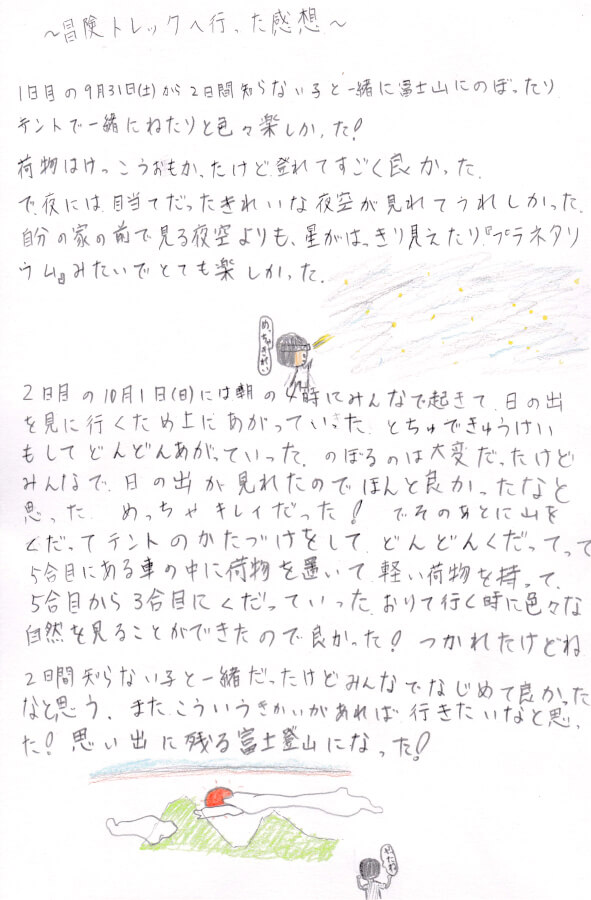 ～冒険トレックへ行った感想～
1日目の9月31日(土)から2日間知らない子と一緒に富士山にのぼったり
テントで一緒にねたりと色々楽しかった!
荷物はけっこうおもかったけど登れてすごく良かった.
で夜には目当てだったきれいな夜空が見れてうれしかった.
自分の家の前で見る夜空よりも、星がはっきり見えたり『プラネタリ
ウム』みたいでとても楽しかった.
めっちゃきれい
2日目の10月1日(日)には朝の4時にみんなで起きて、日の出
を見に行くため上にあがっていった. とちゅできゅうけい
もしてどんどんあがっていった. のぼるのは大変だったけど
みんなで、日の出が見れたのでほんと良かったなと
思った. めっちゃキレイだった! でそのあとに山を
くだってテントのかたづけをして、どんどんくだってって
5合目にある車の中に荷物を置いて軽い荷物を持って、
5合目から3合目にくだっていった.おりて行く時に色々な
自然を見ることができたので良かった! つかれたけどね
2日間知らない子と一緒だったけどみんなでなじめて良かった
なと思う. また、こういうきかいがあれば行きたいなと思っ
た! 思い出に残る富士登山になった!